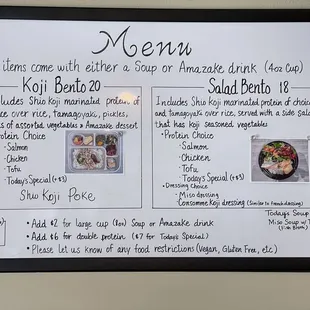 Menu
items come with either a Soup or Amazake drink (4oz Cup)
Koji Bento 20
cludes Shio Koji marinated protein of
ce over rice, Tamagoyaki, pickles,
of assorted vegetables & Amazake dessert
otein Choice
- Salmon
- Chicken
- Tofu
- Today's Special (+$3)
Shio Koji Poke
Salad Bento 18
Includes Shio Koji marinated protein of choice
and tamagoyaki over rice, served with a side salad
that has koji seasoned vegetables
• Protein Choice
- Salmon
- Chicken
- Tofu
- Today's Special (+$3)
• Dressing Choice
- Miso dressing
- Consomme Koji dressing (Similar to french dressing)
Today's Soup
Miso Soup w/ T
(Fish Broth)
• Add $2 for large cup (8oz) Soup or Amazake drink
• Add $6 for double protein ($7 for Today's Special)
• Please let us know of any food restrictions (Vegan, Gluten Free, etc)